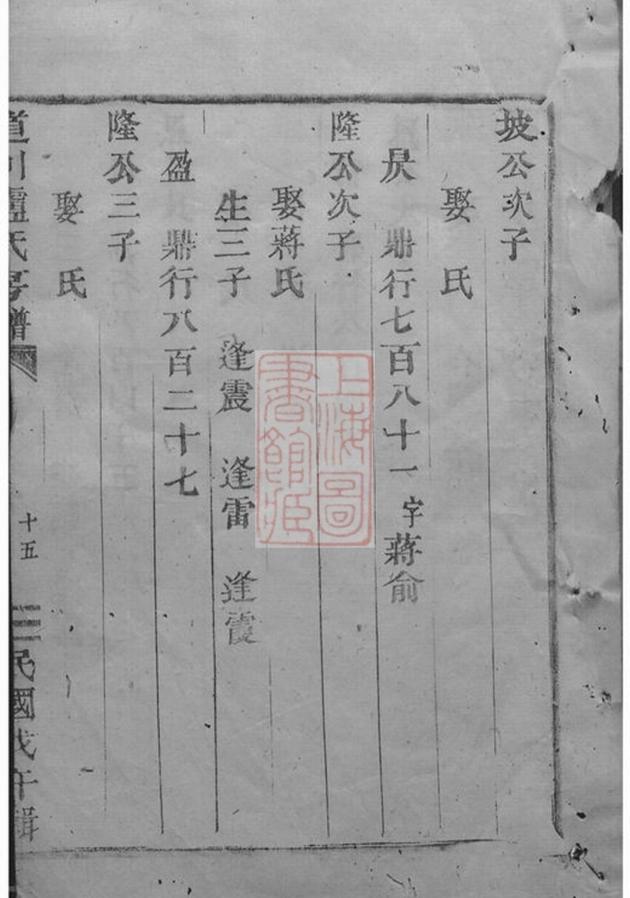 坡公次子
娶 氏
昃 鼎行七百八十一 字蔣俞
隆公次子
娶蔣氏
生三子 逢震 逢雷 逢霞
盈 鼎行八百二十七
隆公三子
娶 氏
道川盧氏 譜 十五 民國戊午輯
上海圖
書館藏